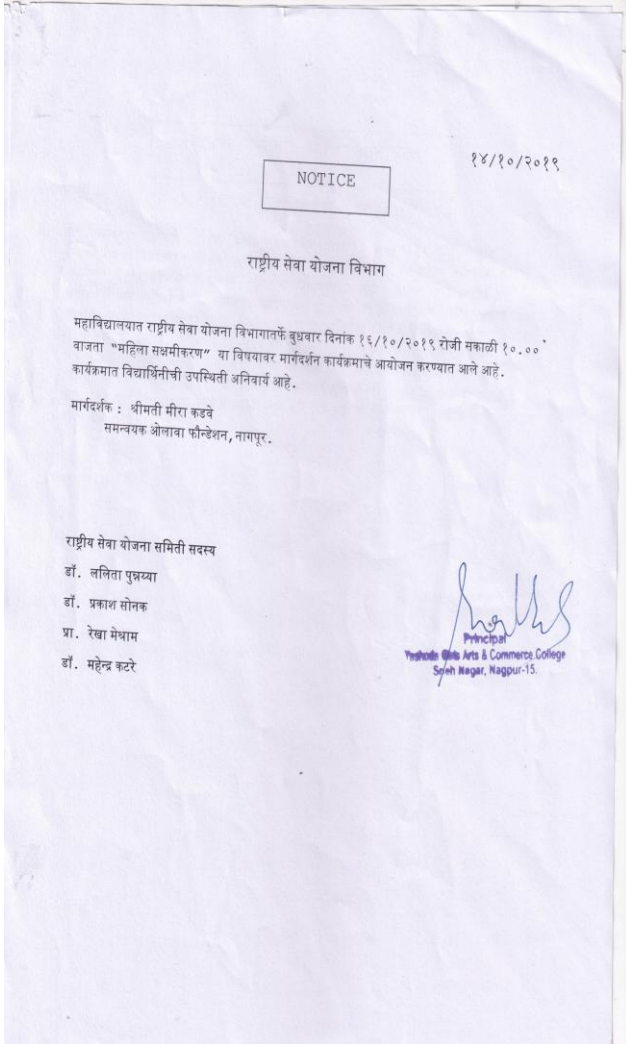 १४/१०/२०१९
NOTICE
राष्ट्रीय सेवा योजना विभाग
महाविद्यालयात राष्ट्रीय सेवा योजना विभागातर्फे बुधवार दिनांक १६/१०/२०१९ रोजी सकाळी १०.००
वाजता “महिला सक्षमीकरण” या विषयावर मार्गदर्शन कार्यक्रमाचे आयोजन करण्यात आले आहे.
कार्यक्रमात विद्यार्थिनीची उपस्थिती अनिवार्य आहे.
मार्गदर्शक : श्रीमती मीरा कडवे
समन्वयक ओलावा फौन्डेशन, नागपूर.
राष्ट्रीय सेवा योजना समिती सदस्य
डॉ. ललिता पुन्नय्या
डॉ. प्रकाश सोनक
प्रा. रेखा मेश्राम
डॉ. महेन्द्र कटरे
Principal
Yashoda Girls Arts & Commerce College
Sneh Nagar, Nagpur-15.